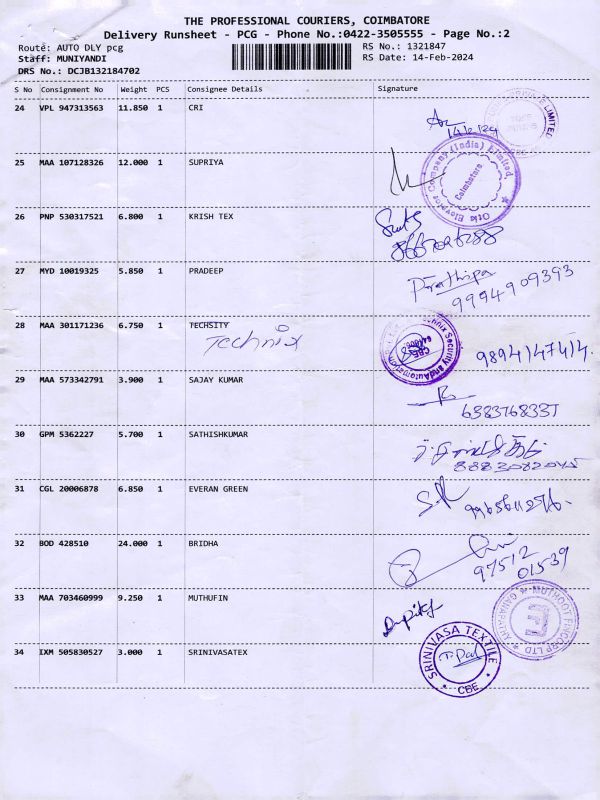 THE PROFESSIONAL COURIERS, COIMBATORE
Delivery Runsheet - PCG - Phone No.:0422-3505555 - Page No.:2
Route: AUTO DLY pcg
RS No.: 1321847
Staff: MUNIYANDI
RS Date: 14-Feb-2024
DRS No.: DCJB132184702
S No Consignment No Weight PCS Consignee Details Signature
24 VPL 947313563 11.850 1 CRI
14/2/24
25 MAA 107128326 12.000 1 SUPRIYA
Otis Elevator Company (India) Limited.
Coimbatore
26 PNP 530317521 6.800 1 KRISH TEX
27 MYD 10019325 5.850 1 PRADEEP
Prathipa
9994909393
28 MAA 301171236 6.750 1 TECHSITY
Technix
Technix Security and Automation
9894147414.
29 MAA 573342791 3.900 1 SAJAY KUMAR
6383768337
30 GPM 5362227 5.700 1 SATHISHKUMAR
8883082045
31 CGL 20006878 6.850 1 EVERAN GREEN
32 BOD 428510 24.000 1 BRIDHA
97512
01539
33 MAA 703460999 9.250 1 MUTHUFIN
MUTHOOT FINCORP LTD
34 IXM 505830527 3.000 1 SRINIVASATEX
SRINIVASA TEXTILE
CBE